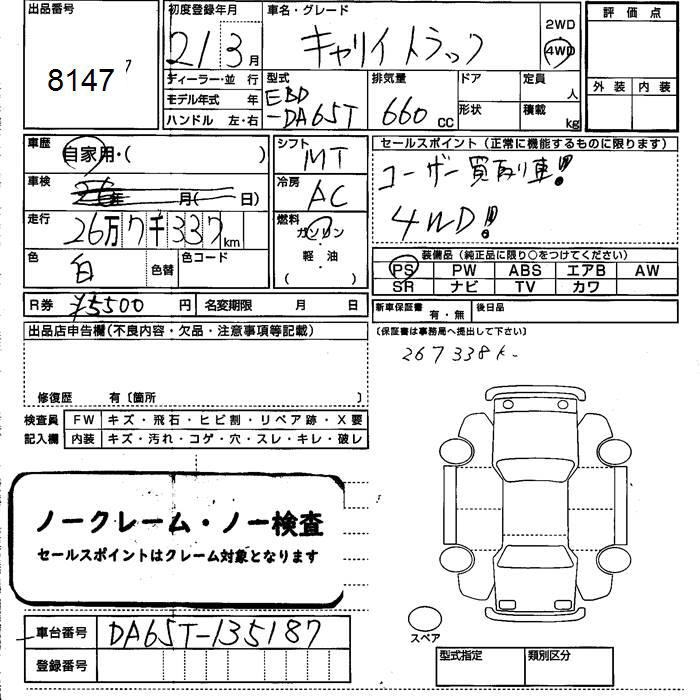 出品番号
8147
初度登録年月
21 3月
車名・グレード
キャリイトラック
2WD
4WD
評価点
外装 内装
ディーラー・並行
モデル年式 年
ハンドル 左・右
型式
EBD
-DA65T
排気量
660cc
ドア
形状
定員
人
積載
kg
車歴
自家用・( )
車検
26年 月( 日)
走行
26万7千337km
色
白
色替
色コード
シフト
MT
冷房
AC
燃料
ガソリン
軽・油
( )
セールスポイント(正常に機能するものに限ります)
ユーザー買取り車!!
4WD!!
装備品(純正品に限り○をつけてください)
PS PW ABS エアB AW
SR ナビ TV カワ
R券 ¥5500 円
名変期限 月 日
新車保証書 有・無
後日品
(保証書は事務局へ提出して下さい)
出品店申告欄(不良内容・欠品・注意事項等記載)
267338k
修復歴 有〔箇所 〕
検査員 FW キズ・飛石・ヒビ割・リペア跡・X要
記入欄 内装 キズ・汚れ・コゲ・穴・スレ・キレ・破レ
ノークレーム・ノー検査
セールスポイントはクレーム対象となります
車台番号 DA65T-135187
登録番号
スペア
型式指定
類別区分